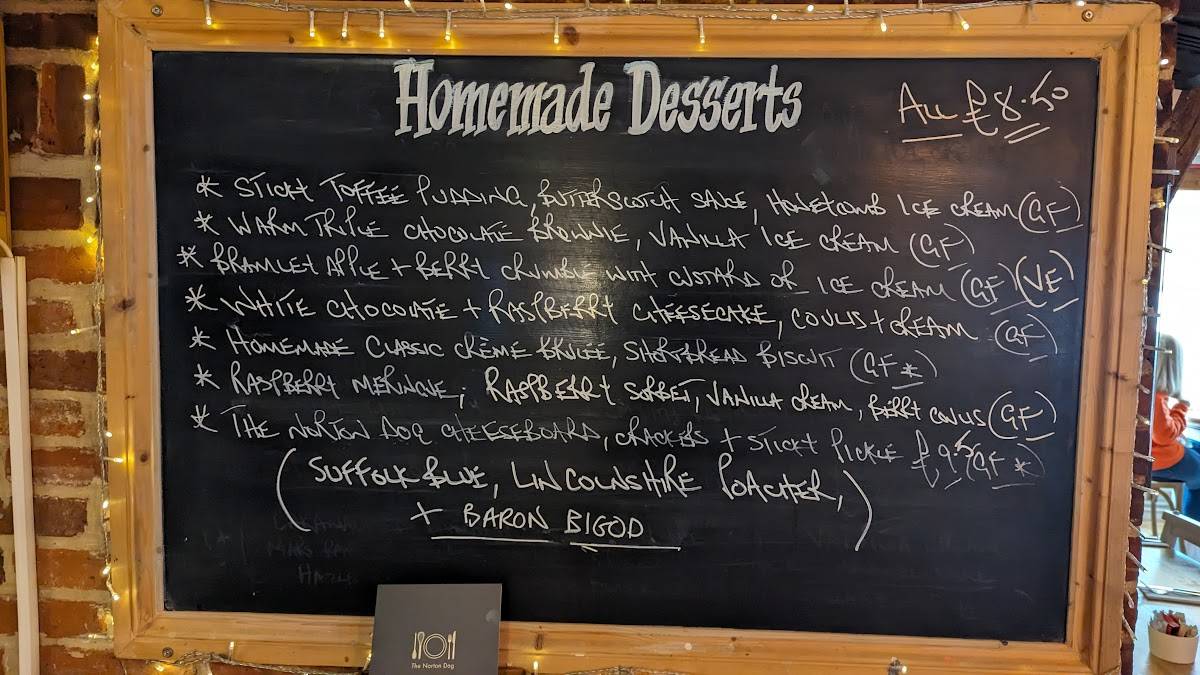 Homemade Desserts
All £8.50
* STICKY TOFFEE PUDDING, BUTTERSCOTCH SAUCE, HONEYCOMB ICE CREAM (GF)
* WARM TRIPLE CHOCOLATE BROWNIE, VANILLA ICE CREAM (GF)
* BRAMLEY APPLE + BERRY CRUMBLE WITH CUSTARD OR ICE CREAM (GF) (VE)
* WHITE CHOCOLATE + RASPBERRY CHEESECAKE, COULIS + CREAM (GF)
* HOMEMADE CLASSIC CRÈME BRULEE, SHORTBREAD BISCUIT (GF*)
* RASPBERRY MERINGUE, RASPBERRY SORBET, VANILLA CREAM, BERRY COULIS (GF)
* THE NORTON DOG CHEESEBOARD, CRACKERS + STICKY PICKLE £9.5 (GF*)
(SUFFOLK BLUE, LINCOLNSHIRE POACHER,
+ BARON BIGOD)
The Norton Dog